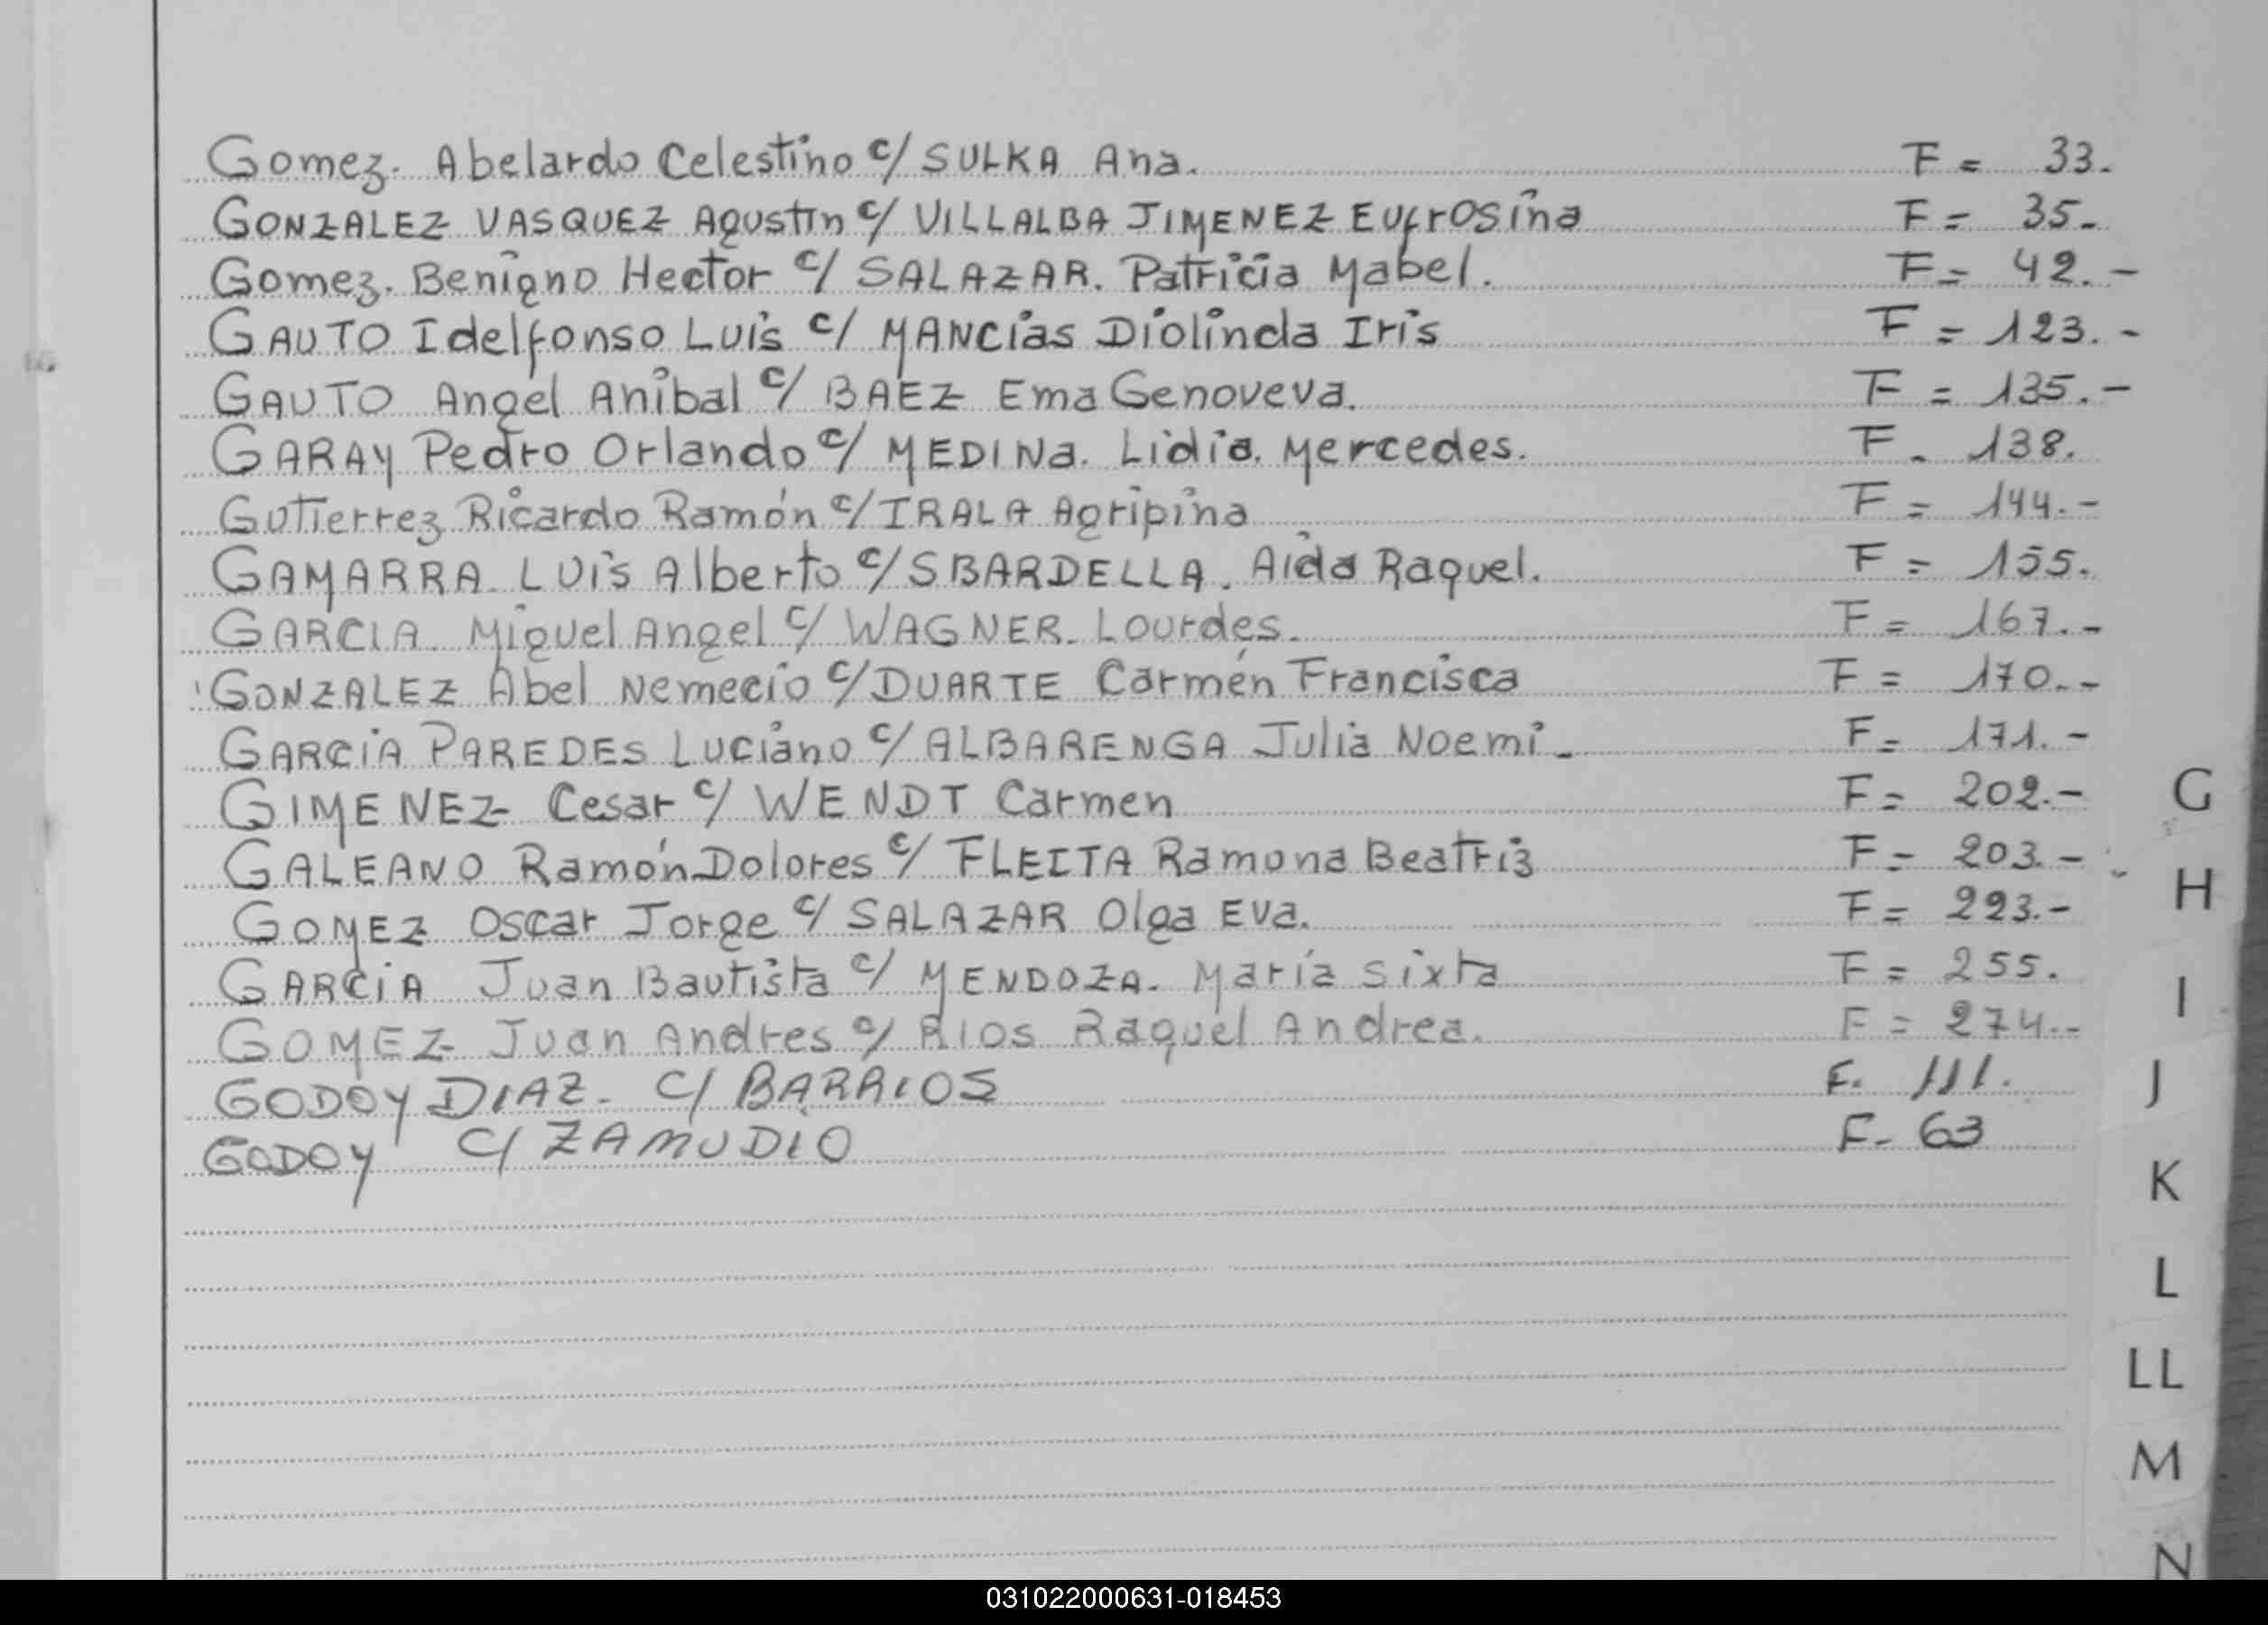 Gomez. Abelardo Celestino c/ SULKA Ana. F = 33.
GONZALEZ VASQUEZ Agustin c/ VILLALBA JIMENEZ Eufrosina F = 35-
Gomez. Benigno Hector c/ SALAZAR. Patricia Mabel. F = 42.-
GAUTO Idelfonso Luis c/ MANCias Diolinda Iris F = 123.-
GAUTO Angel Anibal c/ BAEZ Ema Genoveva. F = 135.-
GARAY Pedro Orlando c/ MEDINa. Lidia. Mercedes. F. 138.
Gutierrez Ricardo Ramón c/ IRALA Agripina F = 144.-
GAMARRA. LUis Alberto c/ SBARDELLA. Aida Raquel. F = 155.
GARCIA. Miguel Angel c/ WAGNER. Lourdes. F = 167.-
GONZALEZ Abel Nemecio c/ DUARTE Carmen Francisca F = 170.-
GARCiA PAREDES Luciano c/ ALBARENGA Julia Noemi- F = 171.-
GIMENEZ Cesar c/ WENDT Carmen F = 202.-
GALEANO Ramón Dolores c/ FLEITA Ramona Beatriz F = 203.-
GOMEZ Oscar Jorge c/ SALAZAR Olga Eva. F = 223.-
GARCiA Juan Bautista c/ MENDOZA. María Sixta F = 255.
GOMEZ Juan Andres c/ Rios Raquel Andrea. F = 274.-
GODOY DIAZ- C/ BARRIOS F. 111.
GODOY C/ ZAMUDIO F- 63
G
H
I
J
K
L
LL
M
N
031022000631-018453